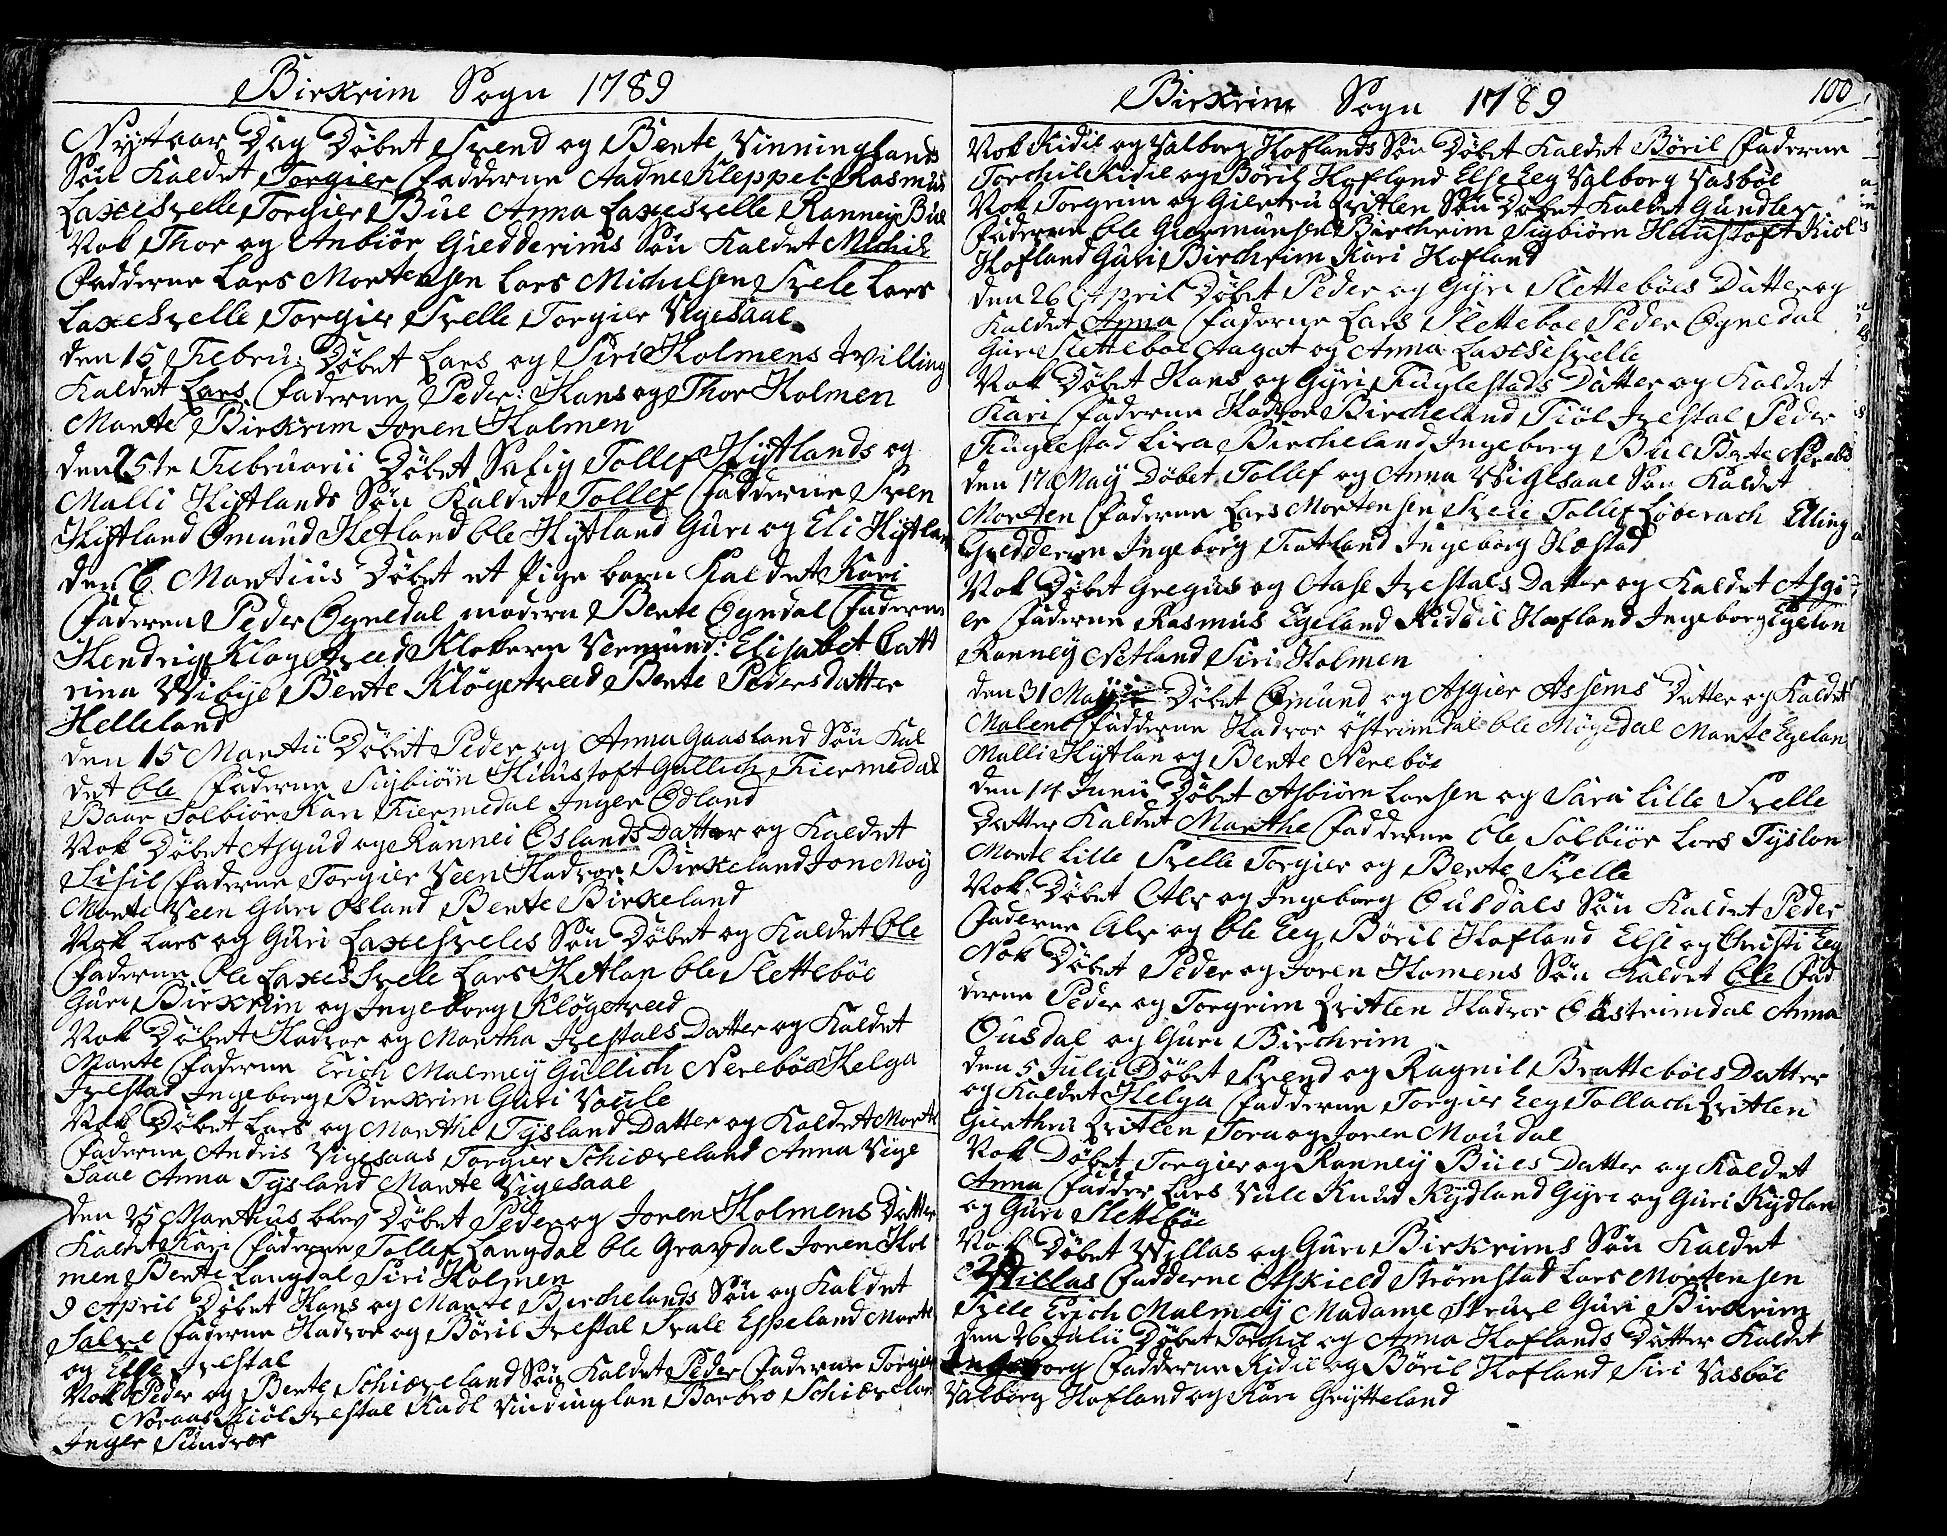 Birkrim Sogn 1789
Nytaar Dag Döbet Svend og Bente Vinninglands
Sön Kaldet Torgier Fadderne Aadne Kleppel: Rasmus
Laxesvelle Torgier Bue Anna Laxesvelle Ranney Bue
Nok Thor og Anbiör Giedderims Sön Kaldet Michil
Fadderne Lars Mortensen Lars Michelsen Svele Lars
Laxesvelle Torgier Svelle Torgier Vigesaae
den 15 Febru: Döbet Lars og Siri Holmens Tvilling
Kaldet Lars Faderne Peder: Hans og Thor Holmen
Marte Birkrim Joren Holmen
den 25te Februarii Döbet Salig Tollef Hÿtlands og
Malli Hÿtlands Sön Kaldet Tollef Fadderne Sven
Hÿtland Omund Hetland Ole Hÿtland Guri og Eli Hÿtlan
den 6 Martius Döbet et Pige barn Kaldet Kari
Faderen Peder Ognedal modern Bente Ogndal Faderne
Hendrig Klogetveed Klokern Vermund: Elisabet Catt
rina Vibye Bente Klögetveed Bente Pedersdatter
Helleland
den 15 Martii Döbet Peder og Anna Gaasland Sön Kal
det Ole Faderne Sigbiörn Huustoft Gullich Fiermedal
Baar Solbiör Kari Fiermedal Inger Odland
Nok Döbet Asgud og Rannei Oslands Datter og Kaldet
Sisil Faderne Torgier Veen Hadvor Birkeland Jon Moÿ
Marte Veen Guri Osland Bente Birkeland
Nok Lars og Guri Laxesveles Sön Döbet og Kaldet Ole
Faderne Ole Laxesvele Lars Hetlan Ole Sletteböe
Guri Birkrim og Ingeborg Klögetveed
Nok Döbet Hadvor og Martha Ivestals Datter og Kaldet
Marte Faderne Erich Malmeÿ Gullich Nereböe Helga
Ivestad Ingeborg Birkrim Guri Vaule
Nok Döbet Lars og Marthe Tysland Datter og Kaldet Marte
Faderne Andris Vigesaas Torgier Schiæveland Anna Vige
Saae Anna Tysland Marte Vigesaae
den 25 Martius blev Döbet Peter og Joren Holmens Datter
Kaldet Kari Faderne Tollef Langdal Ole Gravdal Joren Hol
men Bente Langdal Siri Holmen
9 April Döbet Hans og Marte Birchelands Sön og Kaldet
Salve Faderne Hadvor og Böril Ivestal Svale Espeland Marte
og Else Ivestal
Nok Peder og Bente Schiæveland Sön Kaldet Peder Faderne Torgier
Noraas Fiöl Ivestal Karl Vindinglan Barbro Schiævelan
Inger Sundvor
Birkrim Sogn 1789
100
Nok Kidil og Valborg Hoflands Sön Döbet Kaldet Böril Faderne
Torchil Kidil og Böril Hofland Else Eeg Valborg Vasböe
Nok Torgrim og Giertru Qvitlen Sön Döbet Kaldet Gundler
Faderne Ole Giermunsen Birchrim Sigbiörn Huustoft Kiel
Hofland Guri Birchrim Kari Hofland
den 26 April Döbet Peder og Gyri Sletteböes Datter og
Kaldet Anna Faderne Lars Sletteboe Peder Ognedal
Guri Sletteboe Aagat og Anna Laxesvelle
Nok Döbet Hans og Gyri Fuglestads Datter og Kaldet
Kari Faderne Hadvor Bircheland Fiöl Ivestal Peder
Fuglestad Liva Bircheland Ingeborg Bue Bente Nereb
den 17 Maÿ Döbet Tollef og Anna Vigesaae Sön Kaldet
Morten Faderne Lars Mortensen Svele Tollef Löberach Elling
Giedderim Ingeborg Fratland Ingeborg Hæstad
Nok Döbet Gregus og Aase Ivestals Datter og Kaldet Asgi
er Faderne Rasmus Egeland Kiddil Hofland Ingeborg Egelan
Ranneÿ Netland Siri Holmen
den 31 Maÿ Döbet Omund og Asgier Assems Datter og Kaldet
Malene Fadderne Hadvor östrimdal Ole Mögedal Marte Egelan
Malli Hÿtlan og Bente Nereböe
den 14 Junii Döbet Asbiörn Larsen og Sara Lille Svelle
Datter Kaldet Marthe Fadderne Ole Solbiör Lars Tyslan
Marte Lille Svelle Torgier og Bente Svelle
Nok Döbet Alv og Ingeborg Ousdals Sön Kaldet Peder
Faderne Alv og Ole Eeg Böril Hofland Else og Christi Eeg
Nok Döbet Peder og Joren Homens Sön Kaldet Ole Fad
derne Peder og Torgrim Qvitlen Hadvor Östrimdal Anna
Ousdal og Guri Birchrim
den 5 Julii Döbet Svend og Ragnil Bratteböes Datter
og Kaldet Helga Fadderne Torgier Eeg Tollach Qvitlen
Gierthru Qvitlen Tora og Joren Moudal
Nok Döbet Torgier og Ranneÿ Bues Datter og Kaldet
Anna Fadder Lars Vule Knud Kydland Gyri og Guri Kydlan
og Guri Sletteböe
Nok Döbet Villas og Guri Birkrims Sön Kaldet
Villas Fadderne Askield Strömstad Lars Mortensen
Svele Erich Malmeÿ Madame Schuve Guri Birkrim
den 26 Julii Döbet Torchil og Anna Hoflands Datter Kaldet
Ingeborg Fadderne Kidil og Böril Hofland Siri Vasböe
Valborg Hofland og Kari Grÿtteland